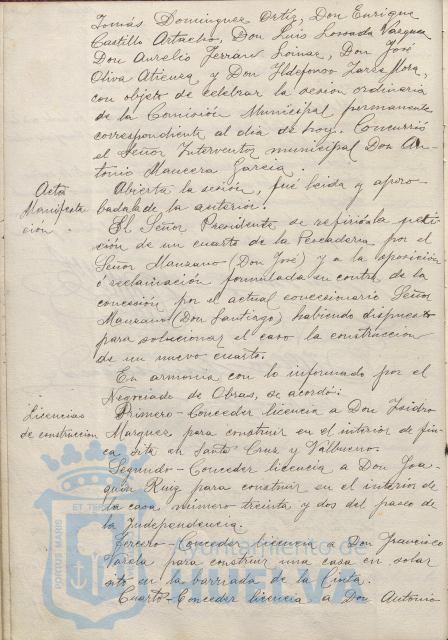 Tomás Dominguez Ortiz, Don Enrique
Castillo Artacho, Don Luis Lossada Vazquez
Don Aurelio Ferran Loinaz, Don José
Oliva Atienza, y Don Ildefonso Jares Mora,
con objeto de celebrar la sesion ordinaria
de la Comisión Municipal permanente
correspondiente al dia de hoy. Concurrió
el Señor Interventor municipal Don An-
tonio Mancera Garcia.
Acta
Abierta la sesión, fué leida y apro-
bada la de la anterior.
Manifesta
cion.
El Señor Presidente se refirió a la peti-
ción de un cuarto de la Pescaderia por el
Señor Manzano (Don José) y a la oposición
o reclamación formulada en contra de la
concesión por el actual concesionario Señor
Manzano (Don Santiago) habiendo dispuesto
para solucionar el caso la construccion
de un nuevo cuarto.
En armonia con lo informado por el
Negociado de Obras, se acordó:
Licencias
de construccion
Primero - Conceder licencia a Don Isidro
Marquez para construir en el interior de fin-
ca sita en Santa Cruz y Valbueno.
Segundo - Conceder licencia a Don Joa-
quin Ruiz para construir en el interior de
la casa número treinta y dos del paseo de
la Independencia.
Tercero - Conceder licencia a Don Francisco
Varela para construir una casa en solar
sito en la barriada de la Cinta.
Cuarto - Conceder licencia a Don Antonio
PORTUS MARIS ET TERRAE
Ayuntamiento de
HUELVA